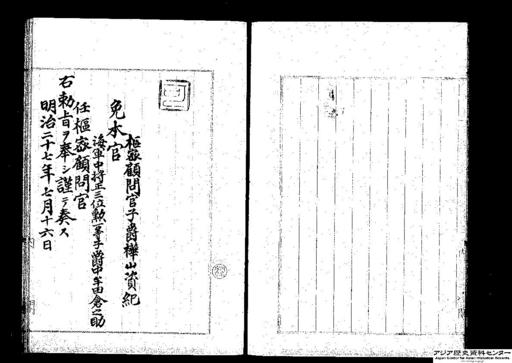 樞密顧問官子爵樺山資紀
免本官
海軍中將正三位勲一等子爵中牟田倉之助
任樞密顧問官
右勅旨ヲ奉シ謹テ奏ス
明治二十七年七月十六日
アジア歴史資料センター
Japan Center for Asian Historical Records